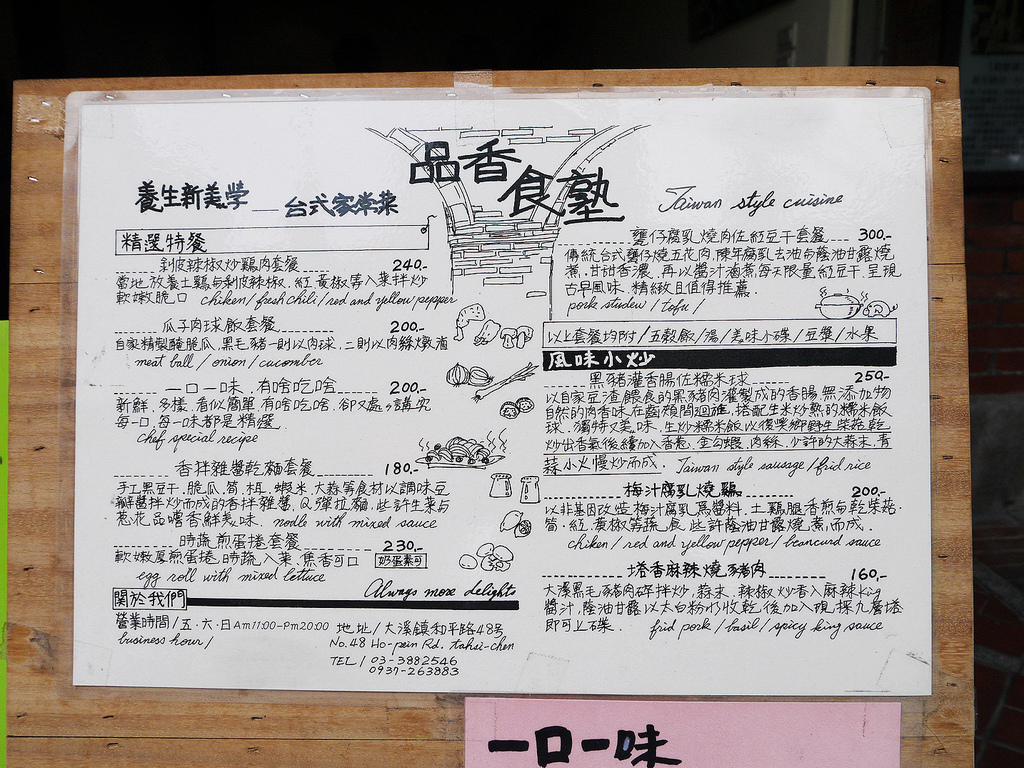 品香食塾
養生新美學 — 台式家常菜
Taiwan style cuisine
精選特餐
剝皮辣椒炒雞肉套餐 240.-
當地放養土雞与剝皮辣椒.紅黃椒等入菜拌炒
軟嫩脆口 chiken/fresh chili/red and yellow pepper
瓜子肉球飯套餐 200.-
自家精製醃脆瓜.黑毛豬一則以肉球,二則以肉絲燉滷
meat ball / onion / cucomber
一口一味.有啥吃啥 200.-
新鮮.多樣.看似簡單.有啥吃啥.卻又處處講究
每一口,每一味都是精選.
chef special recipe
香拌雜醬乾麵套餐 180.-
手工黑豆干.脆瓜.筍.柢.蝦米.大蒜等食材以調味豆
瓣醬拌炒而成的香拌雜醬,Q彈拉麵,些許生菜与
蔥花品嚐香鮮美味. nodle with mixed sauce
時蔬煎蛋捲套餐 230.-
軟嫩厚煎蛋捲.時蔬入菜.焦香可口 奶蛋素可
egg roll with mixed lettuce
Always more delights
關於我們
營業時間/五.六.日Am11:00-Pm20:00
business hour/
地址/大溪鎮和平路48号
No.48 Ho-pein Rd. tahsi-chen
TEL/ 03-3882546
0937-263883
甕仔腐乳燒肉佐紅豆干套餐 300.-
傳統台式甕仔燒五花肉,陳年腐乳去油与蔭油甘露燒
煮.甘甜香濃.再以醬汁滷煮每天限量紅豆干.呈現
古早風味.精緻且值得推薦.
pork studew / tofu /
以上套餐均附/五穀飯/湯/美味小碟/豆漿/水果
風味小炒
黑豬灌香腸佐糯米球 250.-
以自家豆渣餵食的黑豬肉灌製成的香腸.無添加物
自然的肉香味在齒頰間迴雅.搭配生米炒熟的糯米飯
球.獨特又美味.生炒糯米飯以復興鄉野生菜菇乾
炒出香氣後續加入香菇.金勾蝦.肉絲.少許的大蒜末.青
蒜小火慢炒而成. Taiwan style sausage/frid rice
梅汁腐乳燒雞 200.-
以非基因改造梅汁腐乳為醬料.土雞腿香煎与乾菜菇.
筍.紅.黃椒等蔬食.些許蔭油甘露燒煮而成.
chiken/red and yellow pepper/beancurd sauce
塔香麻辣燒豬肉 160.-
大溪黑毛豬肉碎拌炒.蒜末.辣椒炒香入麻辣King
醬汁.蔭油甘露以太白粉水收乾,後加入現採九層塔
即可上碟. frid pork / basil / spicy king sauce
一口一味